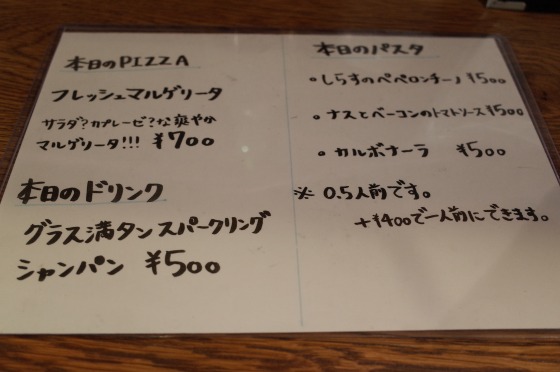 本日のPIZZA
フレッシュマルゲリータ
サラダ?カプレーゼ?な爽やか
マルゲリータ!!! ¥700
本日のドリンク
グラス満タンスパークリング
シャンパン ¥500
本日のパスタ
・しらすのペペロンチーノ ¥500
・ナスとベーコンのトマトソース ¥500
・カルボナーラ ¥500
※ 0.5人前です。
+¥400で一人前にできます。